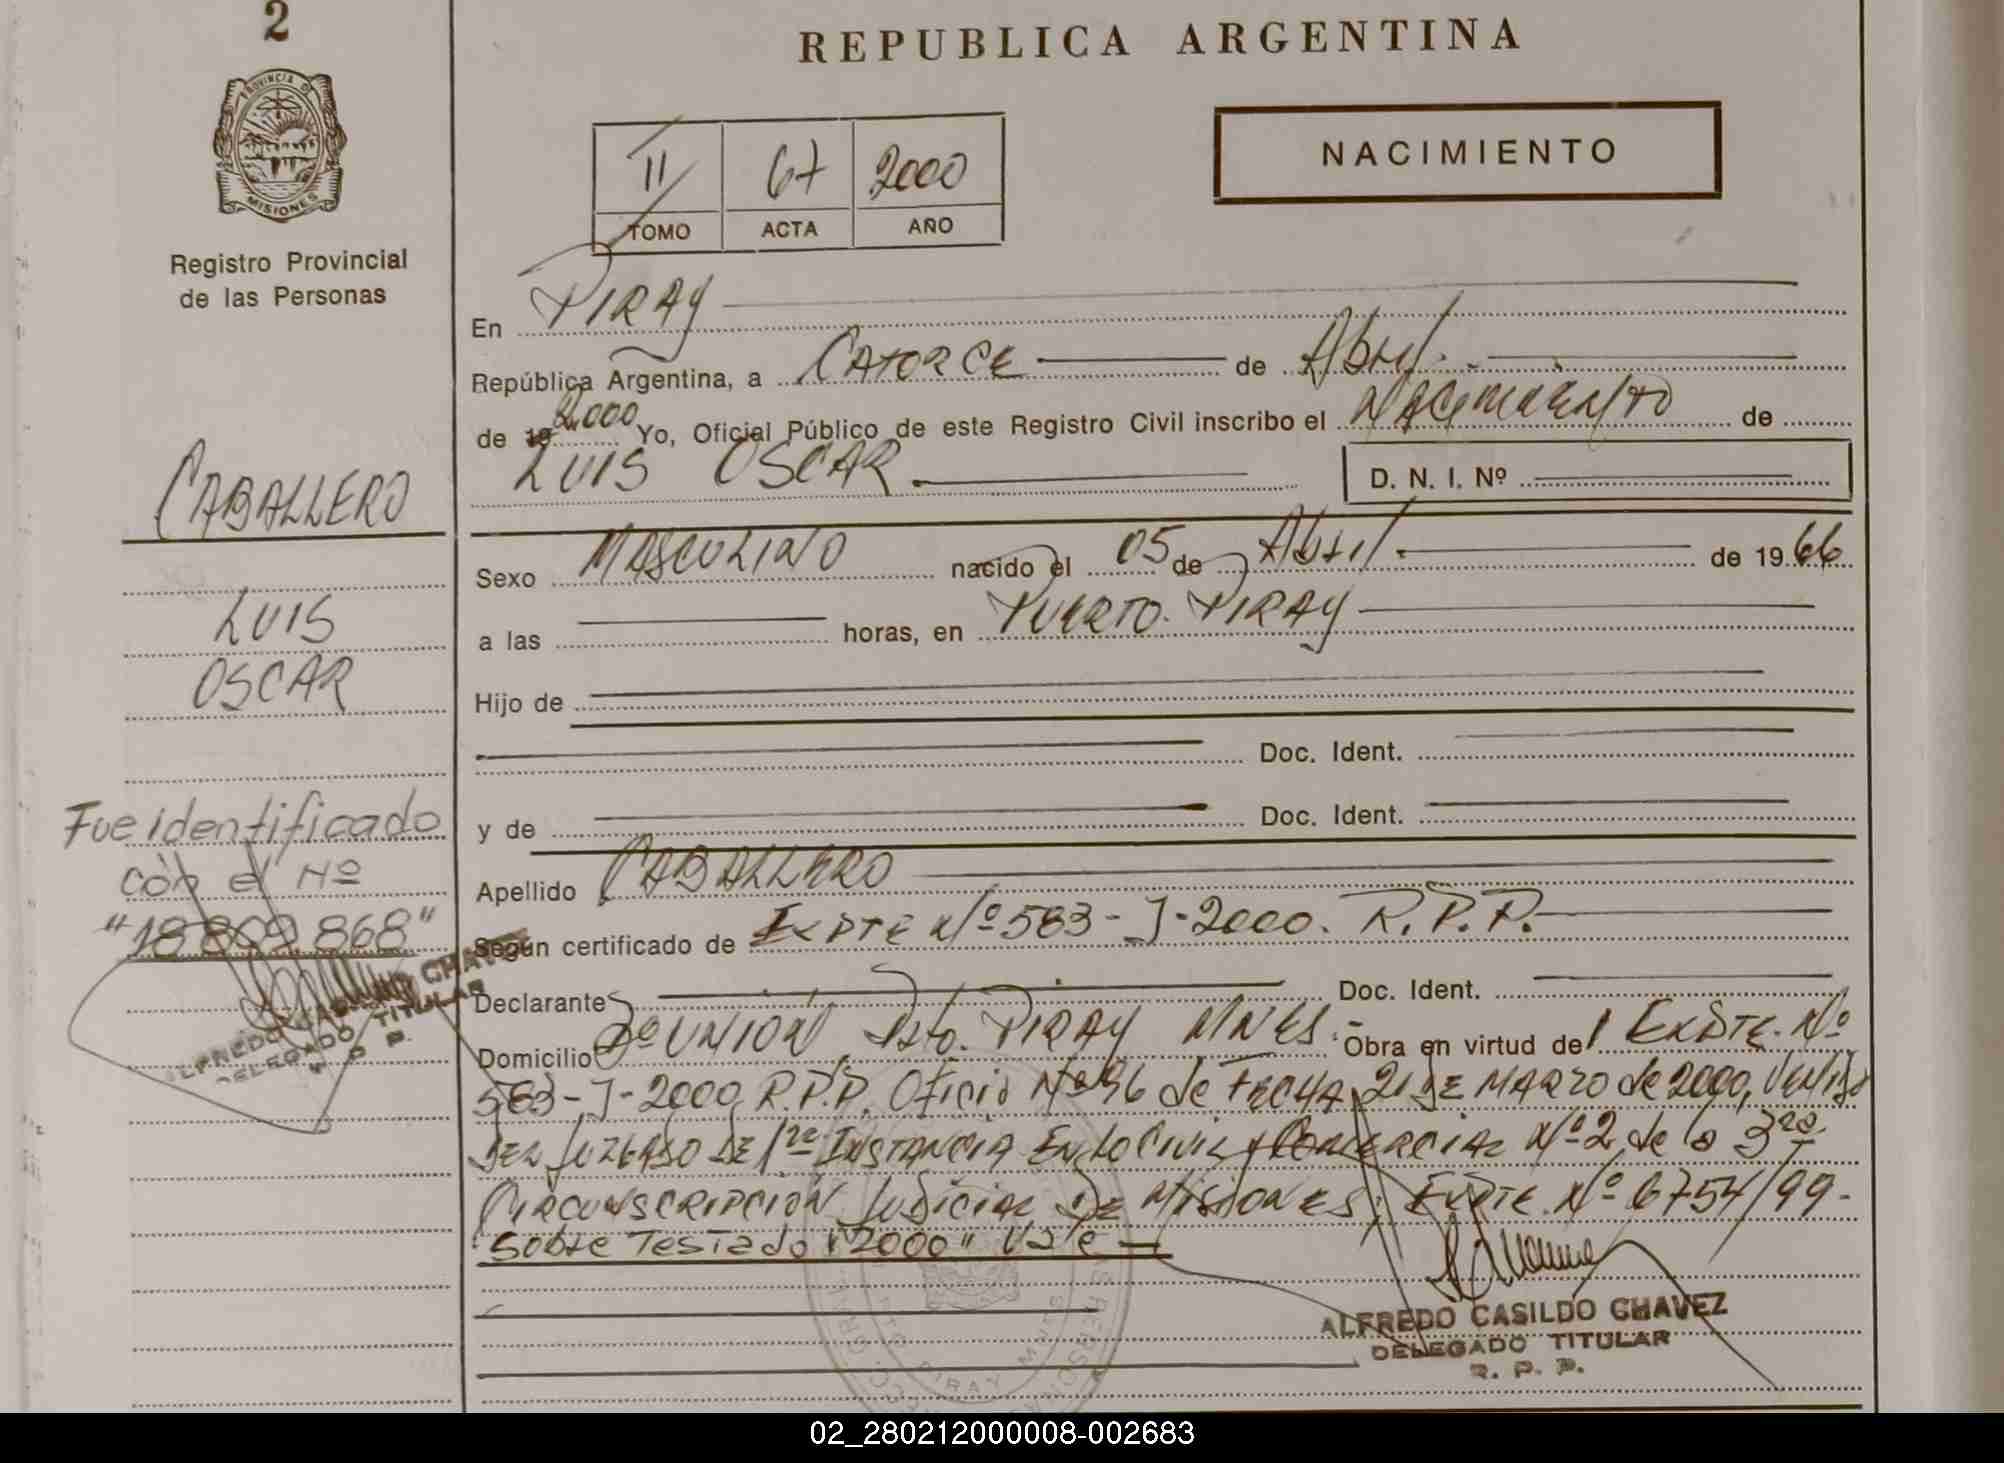 2
REPUBLICA ARGENTINA
PROVINCIA DE
MISIONES
Registro Provincial
de las Personas
II 67 2000
TOMO ACTA AÑO
NACIMIENTO
En PIRAY
República Argentina, a CATORCE de Abril.
de 19 2000 Yo, Oficial Público de este Registro Civil inscribo el NACIMIENTO de
LUIS OSCAR. D. N. I. Nº
CABALLERO
LUIS
OSCAR
Fue identificado
con el Nº
"18.809.868"
ALFREDO CASILDO CHAVEZ
DELEGADO TITULAR
R. P. P.
Sexo MASCULINO nacido el 05 de Abril. de 1966
a las horas, en PUERTO. PIRAY
Hijo de
Doc. Ident.
y de Doc. Ident.
Apellido CABALLERO
Según certificado de EXPTE Nº 583-J-2000. R.P.P.
Declarante Doc. Ident.
Domicilio Bº UNION Pto. PIRAY MNES. Obra en virtud del EXPTE. Nº
583-J-2000 R.P.P. Oficio Nº 96 de FECHA 21 DE MARZO de 2000,
DEL JUZGADO DE 1ra INSTANCIA EN LO CIVIL y COMERCIAL Nº 2 de la 3ra
CIRCUNSCRIPCION JUDICIAL DE MISIONES, EXPTE. Nº 6754/99.-
Sobre Testado "2000" Vale
ALFREDO CASILDO CHAVEZ
DELEGADO TITULAR
R. P. P.
02_280212000008-002683